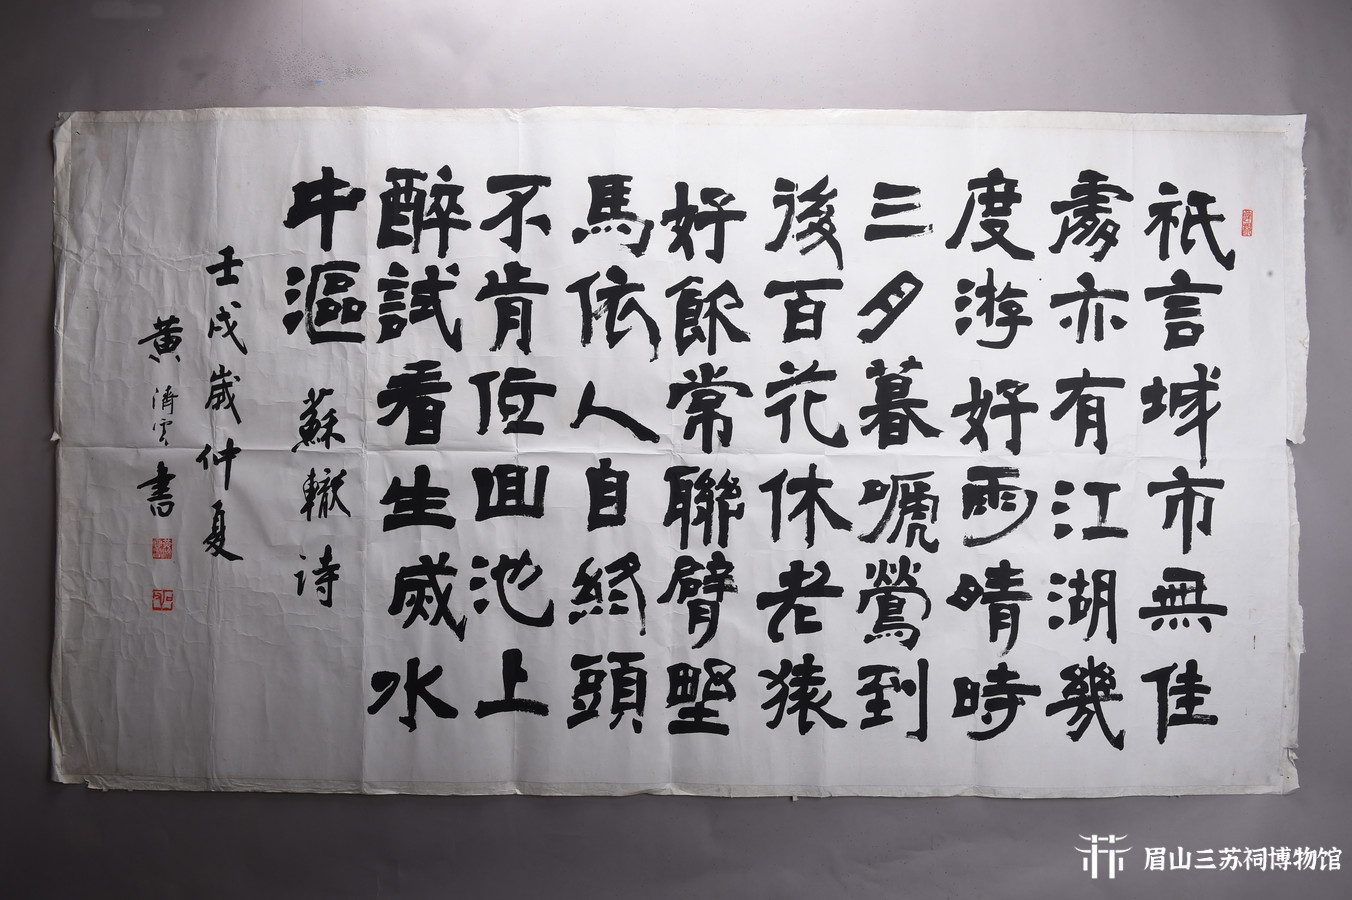 祇言城市無佳
處亦有江湖幾
度游好雨晴時
三夕暮嗁鶯到
後百花休老猿
好飲常聯臂野
馬依人自終頭
不肯低回池上
醉試看生滅水
中漚
蘇轍詩
壬戌歲仲夏
黄濟雲書
眉山三苏祠博物馆